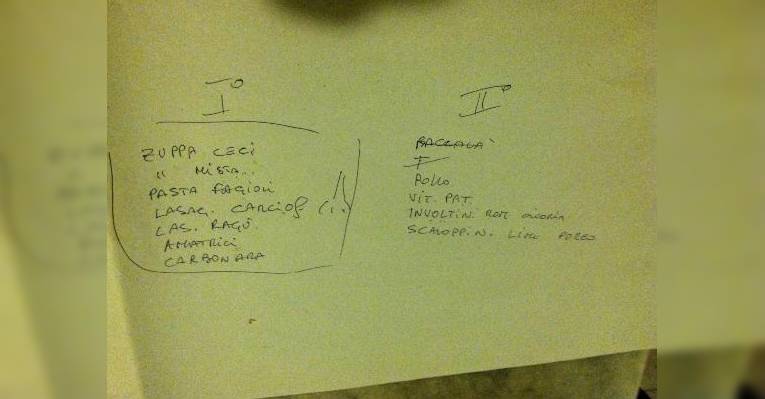 I°
ZUPPA CECI
" MISTA
PASTA FAGIOLI
LASAG. CARCIOF
LAS. RAGÙ
AMATRICI
CARBONARA
II°
BACCALÀ
POLLO
VIT. PAT.
INVOLTIN.
SCALOPPIN.